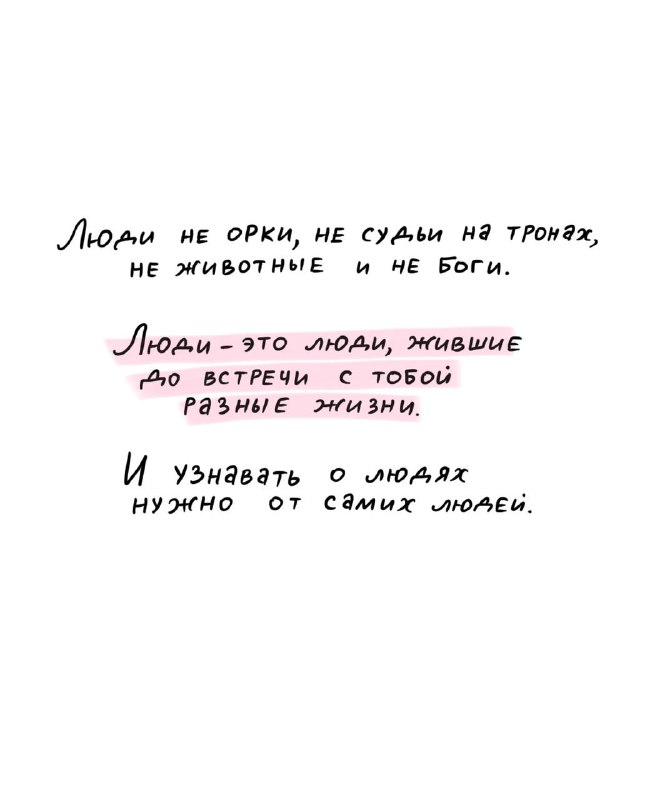 Люди не орки, не судьи на тронах,
не животные и не Боги.
Люди – это люди, жившие
до встречи с тобой
разные жизни.
И узнавать о людях
нужно от самих людей.